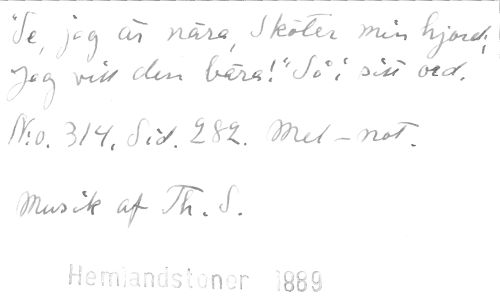 "Se, jag är nära, Sköter min hjord,
Jag vill den bära!" Så i sitt ord.
N:o. 314. Sid. 282. Mel-not.
Musik af Th. S.
Hemlandstoner 1889